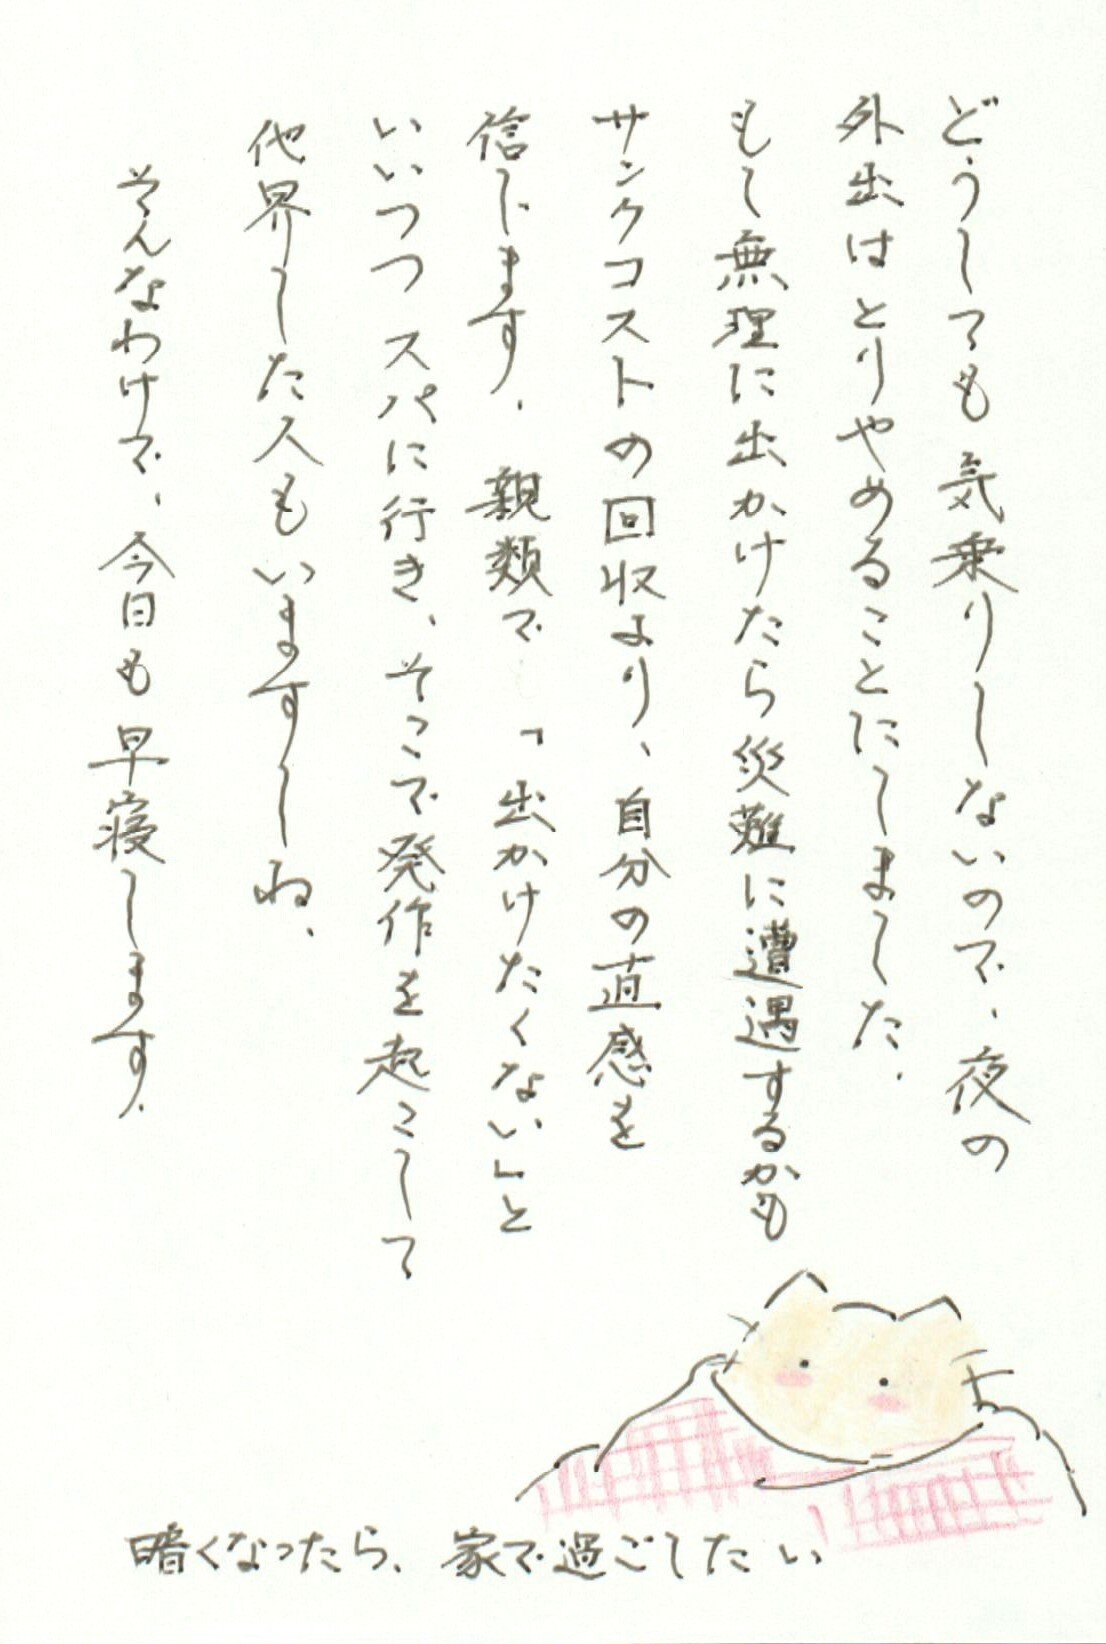 どうしても気乗りしないので、夜の
外出はとりやめることにしました.
もし無理に出かけたら災難に遭遇するかも
サンクコストの回収より、自分の直感を
信じます. 親類で「出かけたくない」と
いいつつ スパに行き、そこで発作を起こして
他界した人もいますしね、
そんなわけで、今日も早寝します.
暗くなったら、家で過ごしたい